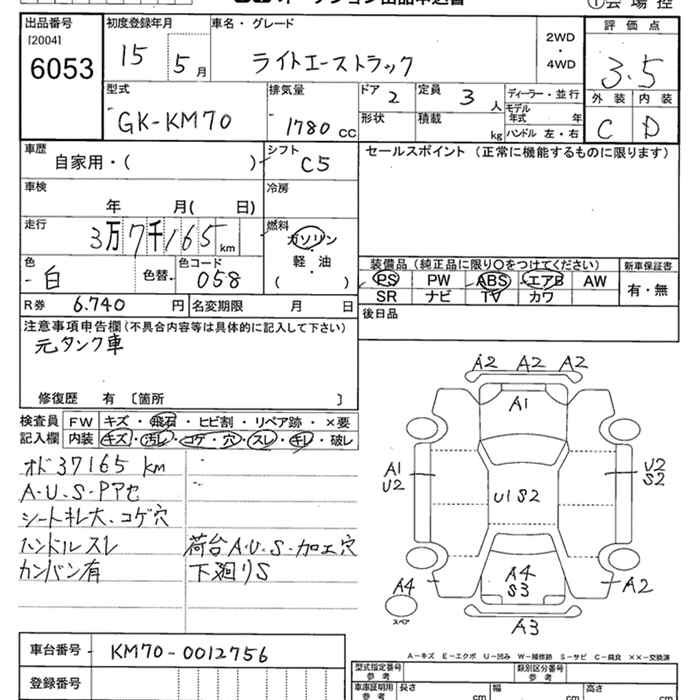 オークション出品申込書
①会場控
出品番号
[2004]
6053
初度登録年月
15 5月
車名・グレード
ライトエーストラック
2WD
・
4WD
評価点
3.5
外装 内装
C D
型式
GK-KM70
排気量
1780 cc
ドア 2
定員 3 人
ディーラー・並行
形状
積載 kg
モデル年式 年
ハンドル 左・右
車歴
自家用・( )
シフト
C5
セールスポイント (正常に機能するものに限ります)
車検
年 月( 日)
冷房
走行
3万7千165km
燃料
ガソリン
軽・油
・
( )
色
白
色替
色コード
058
装備品 (純正品に限り○をつけてください)
PS PW ABS エアB AW
SR ナビ TV カワ
新車保証書
有・無
R券 6.740 円
名変期限 月 日
後日品
注意事項申告欄(不具合内容等は具体的に記入して下さい)
元タンク車
修復歴 有 〔箇所 〕
検査員記入欄
FW キズ・飛石・ヒビ割・リペア跡・×要
内装 キズ・汚レ・コゲ・穴・スレ・キレ・破レ
オド37165 km
A・U・S・Pアセ
シートキレ大、コゲ穴
ハンドルスレ
荷台A・U・S・加工穴
カンバン有
下廻りS
A2 A2 A2
A1
A1
U2
U1S2
U2
S2
A4
スペア
A4
S3
A2
A3
A-キズ E-エクボ U-凹み W-補修跡 S-サビ C-腐食 ××-交換済
車台番号 KM70-0012756
登録番号
型式指定番号
参考
類別区分番号
参考
車庫証明用
参考
長さ cm
幅 cm
高さ cm